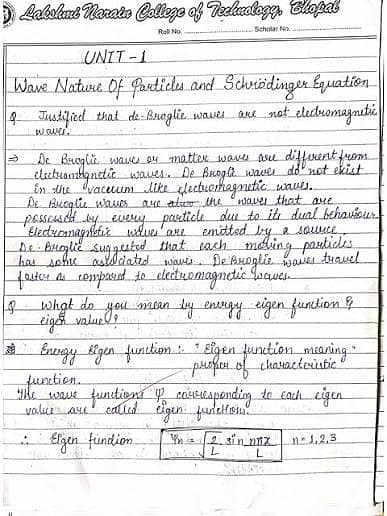 Lakshmi Narain College of Technology, Bhopal
Roll No. Scholar No.
UNIT-1
Wave Nature Of Particles and Schrödinger Equation
Q Justified that de-Broglie waves are not electromagnetic
waves.
⇒ De Broglie waves or matter waves are different from
electromagnetic waves. De Broglie waves do not exist
in the vacuum like electromagnetic waves.
De Broglie waves are the waves that are
possessed by every particle due to its dual behaviour.
Electromagnetic waves are emitted by a source.
De-Broglie suggested that each moving particles
has some associated waves. De Broglie waves travel
faster as compared to electromagnetic waves.
Q What do you mean by energy eigen function &
eigen value?
Energy Eigen function :- "Eigen function meaning"
proper of characteristic
function.
The wave functions Ψ corresponding to each eigen
value are called eigen function.
∴ Eigen function Ψn = √2/L sin nπx/L n = 1,2,3